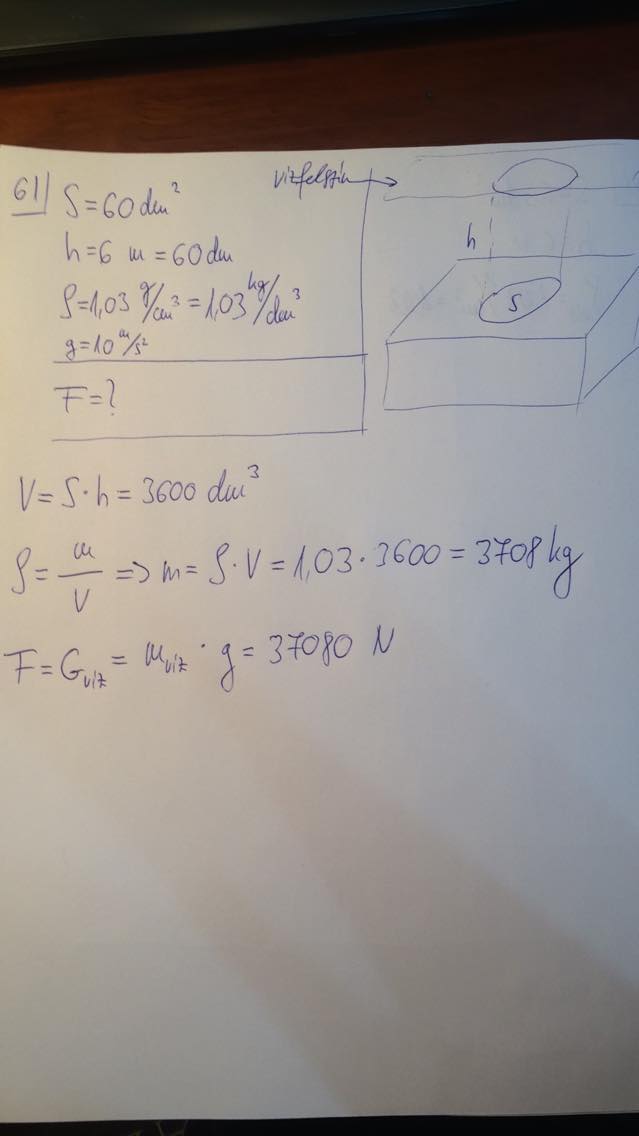 61) S=60 dm²
h=6 m=60 dm
ρ=1,03 g/cm³=1,03 kg/dm³
g=10 m/s²
F=?
vízfelszín
h
S
V=S·h=3600 dm³
ρ=m/V => m=ρ·V=1,03·3600=3708 kg
F=G víz=m víz·g=37080 N